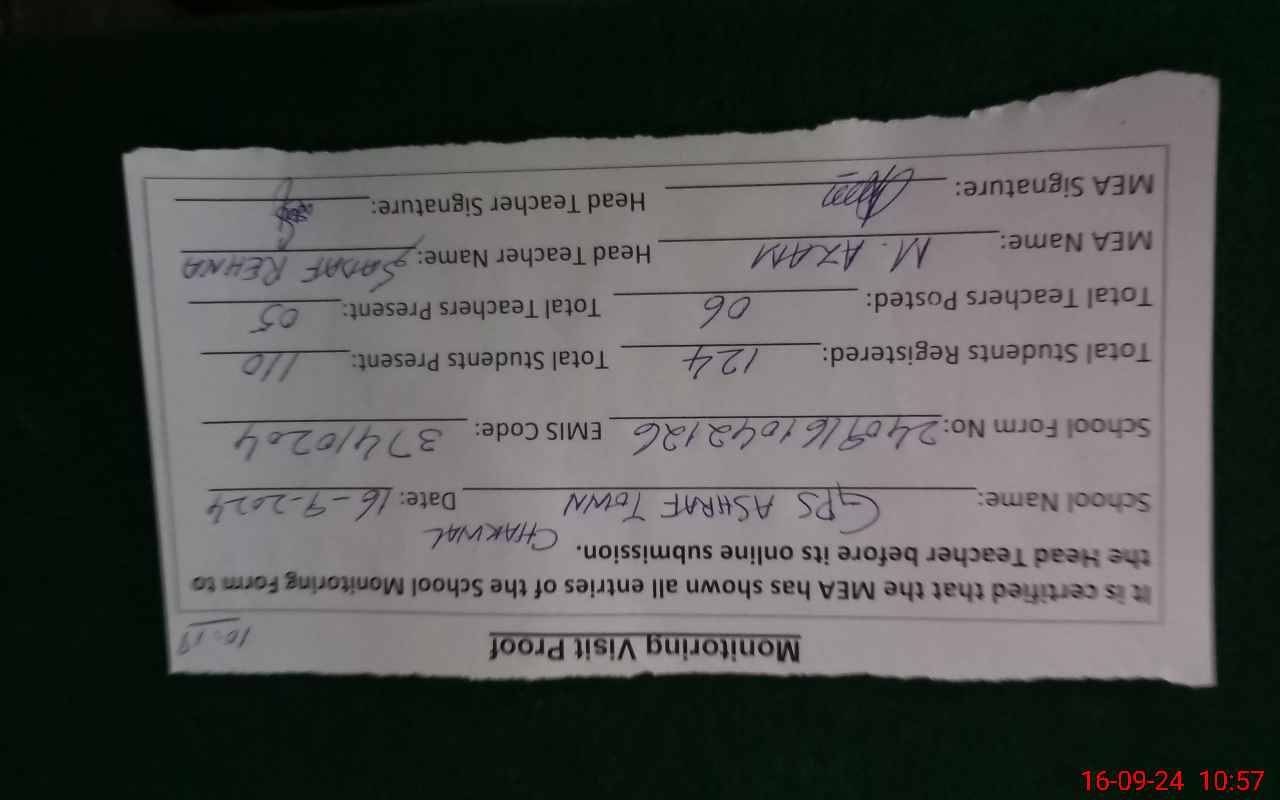 Monitoring Visit Proof
10:19
It is certified that the MEA has shown all entries of the School Monitoring Form to
the Head Teacher before its online submission.
CHAKWAL
School Name: GPS ASHRAF TOWN Date: 16-9-2024
School Form No: 2409161042126 EMIS Code: 37410204
Total Students Registered: 124 Total Students Present: 110
Total Teachers Posted: 06 Total Teachers Present: 05
MEA Name: M. AZAM Head Teacher Name: SADAF REHNA
MEA Signature: Head Teacher Signature:
16-09-24 10:57